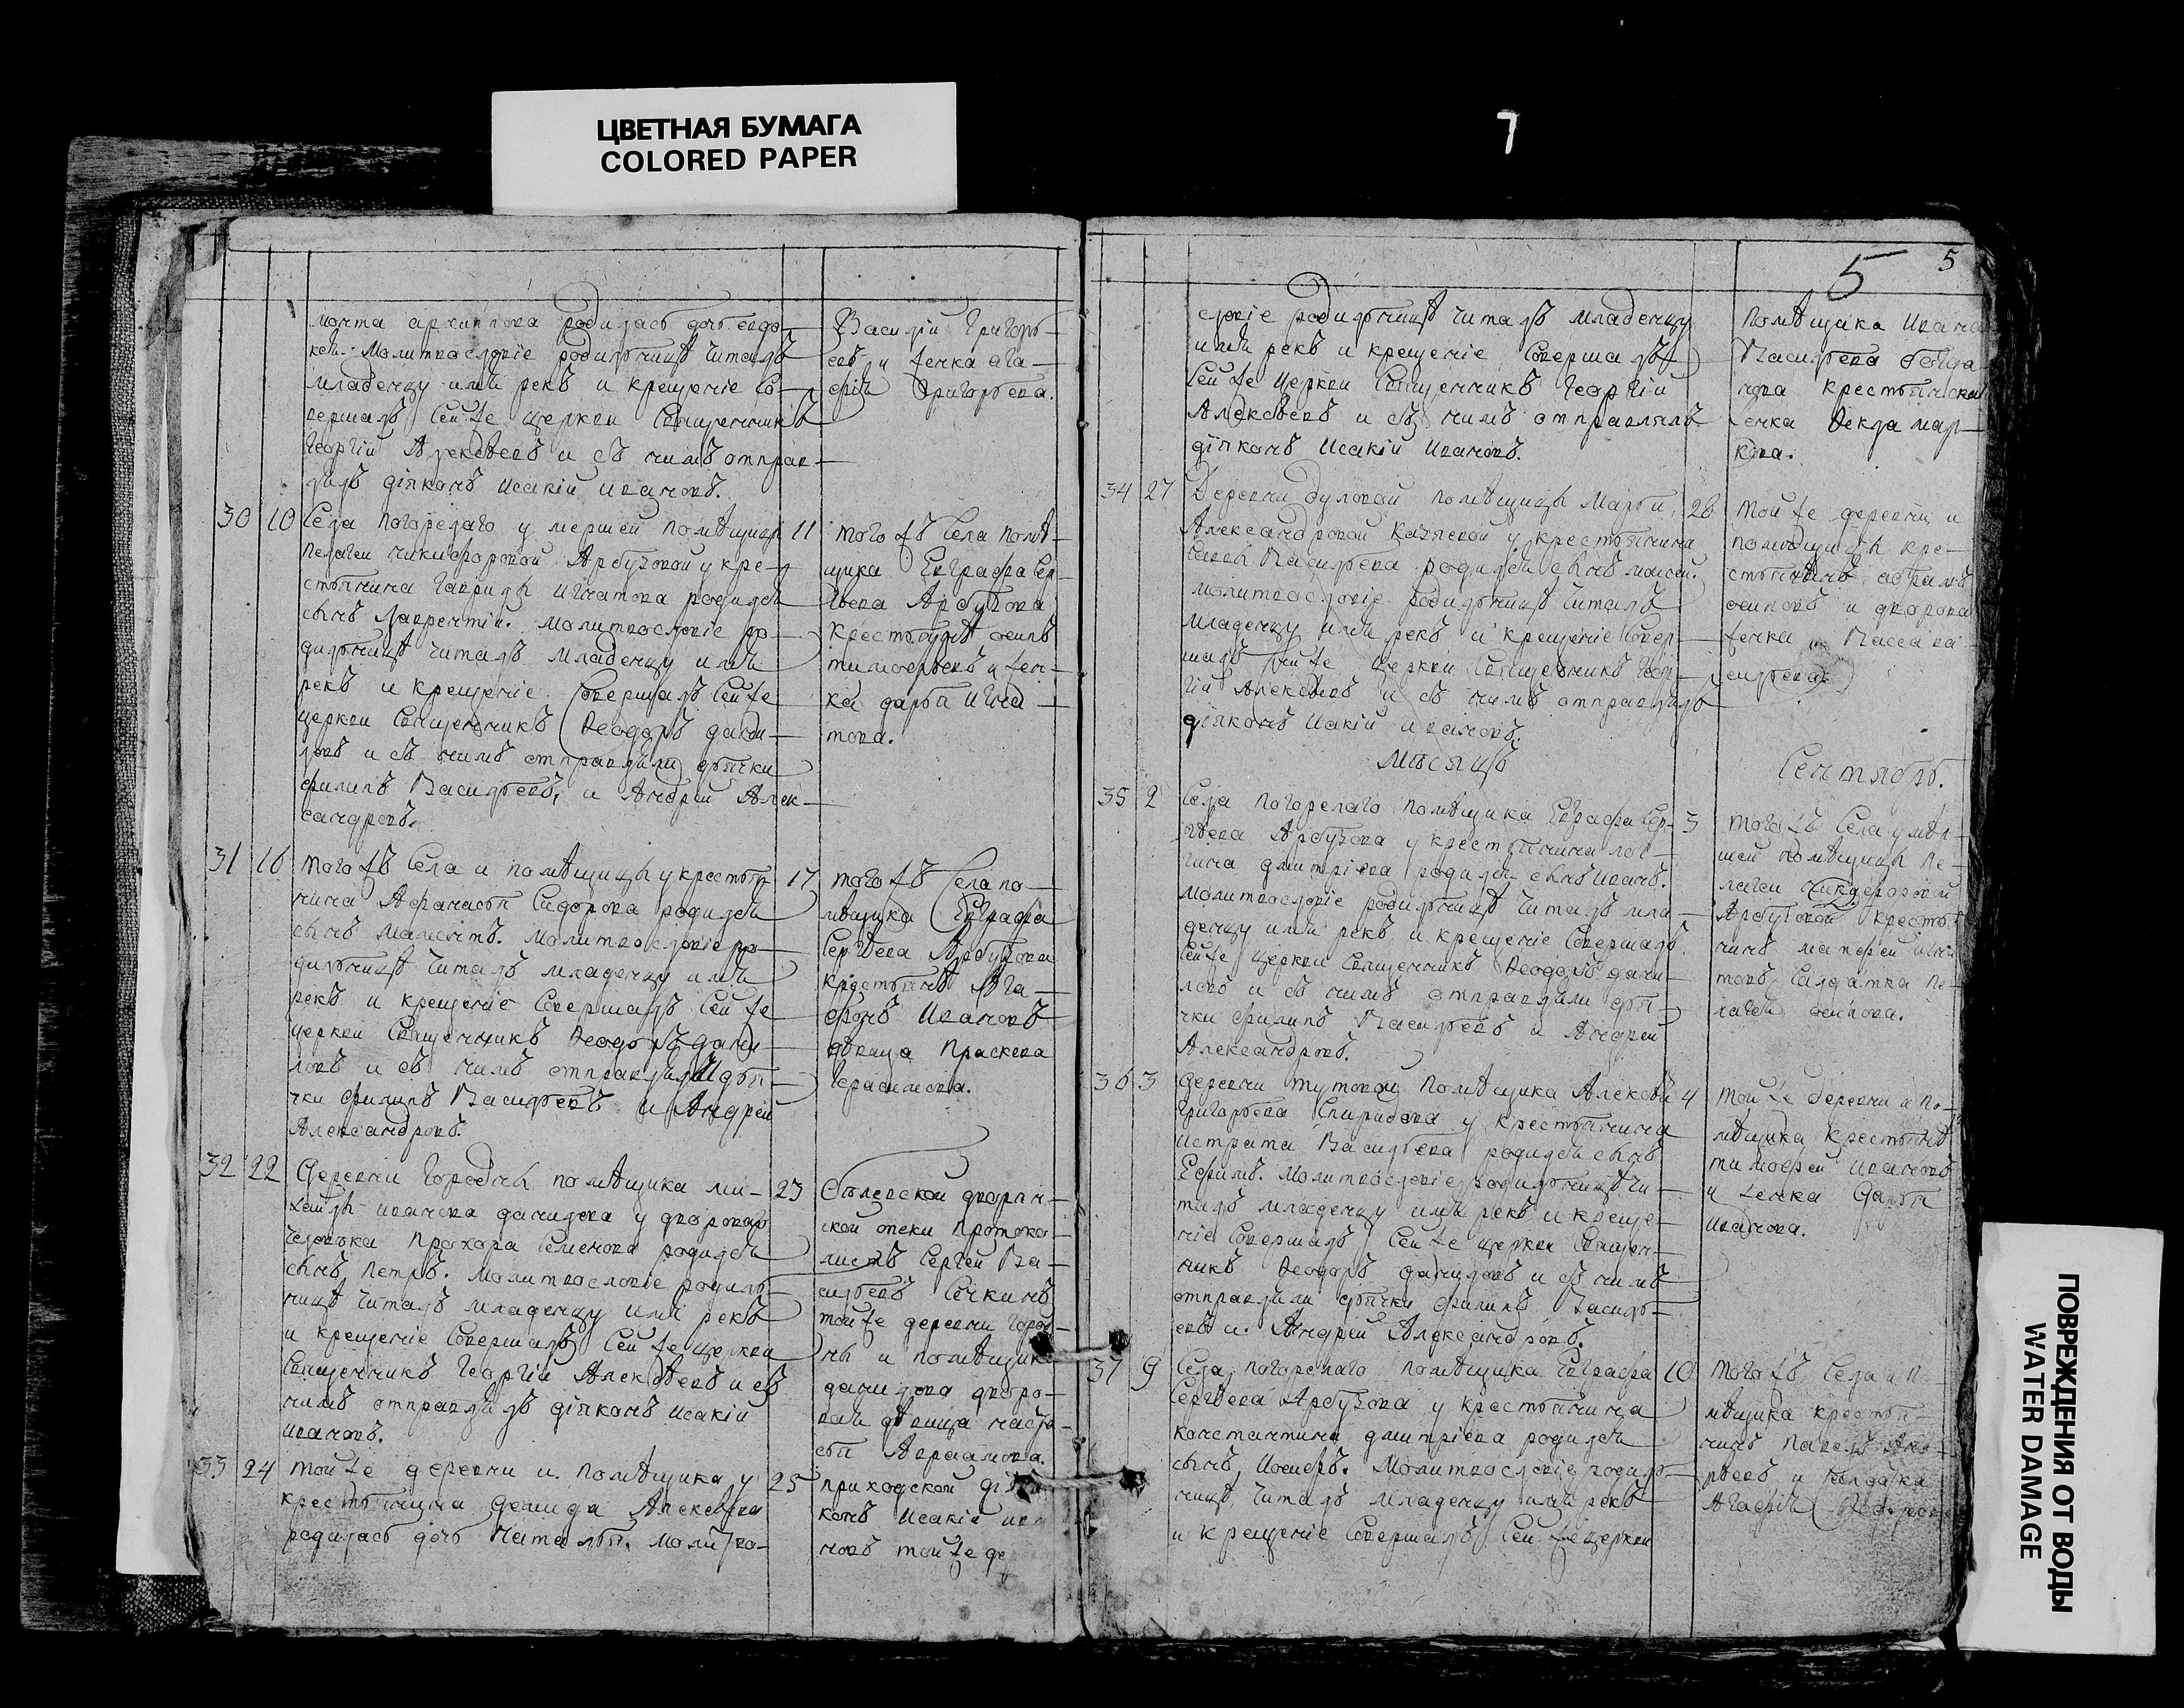 ЦВЕТНАЯ БУМАГА
COLORED PAPER
7
архиппова родилась дочь евдо-
кея. Молитвословіе родильницѣ читалъ
младенцу имя рекъ и крещеніе со-
вершалъ сей же церкви священникъ
Георгій Алексѣевъ и съ нимъ отправ-
лялъ діяконъ Исакій Ивановъ.
Василій Григорь-
евъ и женка ага-
фія Григорьева.
30 10 Села погорелаго умершей помѣщицы
Пелагеи никифоровой Арбузовой у кре-
стьянина Гаврилы Игнатова родился
сынъ Лаврентій. молитвословіе ро-
дильницѣ читалъ младенцу имя
рекъ и крещеніе совершалъ сей же
церкви священникъ Ѳеодоръ дани-
ловъ и съ нимъ отправляли дьячки
филипъ Васильевъ, и Андрей Алек-
сандровъ.
11 того жъ села помѣ-
щика Евграфа Сер-
гѣева Арбузова
осипъ
тимофѣевъ и жен-
ка дарья Игна-
това.
31 16 того жъ села и помѣщицы у крестья-
нина Афанасья Сидорова родился
сынъ Мамонтъ. молитвословіе ро-
дильницѣ читалъ младенцу имя
рекъ и крещеніе совершалъ сей же
церкви священникъ Ѳеодоръ дани-
ловъ и съ нимъ отправляли дья-
чки филипъ Васильевъ и Андрей
Александровъ.
17 того жъ села по-
мѣщика Евграфа
Сергѣева Арбузова
Ага-
фонъ Ивановъ
дѣвица Праскева
Герасимова.
32 22 Деревни Городны помѣщика ми-
хайлы иванова данилова у двороваго
человѣка Прохора Семенова родился
сынъ Петръ. молитвословіе родиль-
ницѣ читалъ младенцу имя рекъ
и крещеніе совершалъ сей же церкви
священникъ Георгій Алексѣевъ и съ
нимъ отправлялъ діяконъ Исакій
Ивановъ.
23 Бѣлевской дворян-
ской опеки протоко-
листъ Сергей Ва-
сильевъ Сечкинъ
той же деревни Город-
ны и помѣщика
данилова дворо-
вая дѣвица наста-
сья Авраамова.
33 24 той же деревни и помѣщика у
крестьянина демида Алексѣева
родилась дочь Наталья. молитво-
25 приходской діа-
конъ Исакій ива-
новъ той же де
5
5
словіе родильницѣ читалъ младенцу
имя рекъ и крещеніе совершалъ
сей же церкви священникъ Георгій
Алексѣевъ и съ нимъ отправлялъ
діяконъ Исакій Ивановъ.
помѣщика Ивана
Васильева
нова
женка Ѳекла мар-
кова.
34 27 Деревни дуловой помѣщицы Марьи
Александровой у крестьянина
савы Васильева родился сынъ моисей.
молитвословіе родильницѣ читалъ
младенцу имя рекъ и крещеніе совер-
шалъ сей же церкви священникъ Геор-
гій Алексѣевъ и съ нимъ отправлялъ
діяконъ Исакій ивановъ.
28 той же деревни и
помѣщицы кре-
стьянинъ абрамъ
осиповъ и дворова
женка
сильева.
Мѣсяцъ Сентябрь.
35 2 Села погорелаго помѣщика Евграфа Сер-
гѣева Арбузова у крестьянина лог-
гина дмитріева родился сынъ иванъ.
молитвословіе родильницѣ читалъ мла-
денцу имя рекъ и крещеніе совершалъ
сей же церкви священникъ Ѳеодоръ дани-
ловъ и съ нимъ отправляли дья-
чки филипъ Васильевъ и Андрей
Александровъ.
3 того жъ села умѣр-
шей помѣщицы Пе-
лагеи никифоровой
Арбузовой крестья
нинъ матфей игна
товъ салдатка пе-
лагея осипова.
36 3 Деревни тутовой помѣщика Алексѣя
Григорьева Спиридова у крестьянина
истрата Васильева родился сынъ
Ефимъ. молитвословіе родильницѣ чи-
талъ младенцу имя рекъ и креще-
ніе совершалъ сей же церкви священ-
никъ Ѳеодоръ даниловъ и съ нимъ
отправляли дьячки филипъ Василь-
евъ и Андрей Александровъ.
4 той же деревни и по-
мѣщика крестьянинъ
тимофей ивановъ
и женка Дарья
иванова.
37 9 Села погорелаго помѣщика Евграфа
Сергѣева Арбузова у крестьянина
константина дмитріева родился
сынъ Иосифъ. молитвословіе родиль-
ницѣ читалъ младенцу имя рекъ
и крещеніе совершалъ сей же церкви
10 того жъ села и п
мѣщика крестья-
нинъ Павелъ Анд-
рѣевъ и салдатка
Агафія
ПОВРЕЖДЕНИЯ ОТ ВОДЫ
WATER DAMAGE